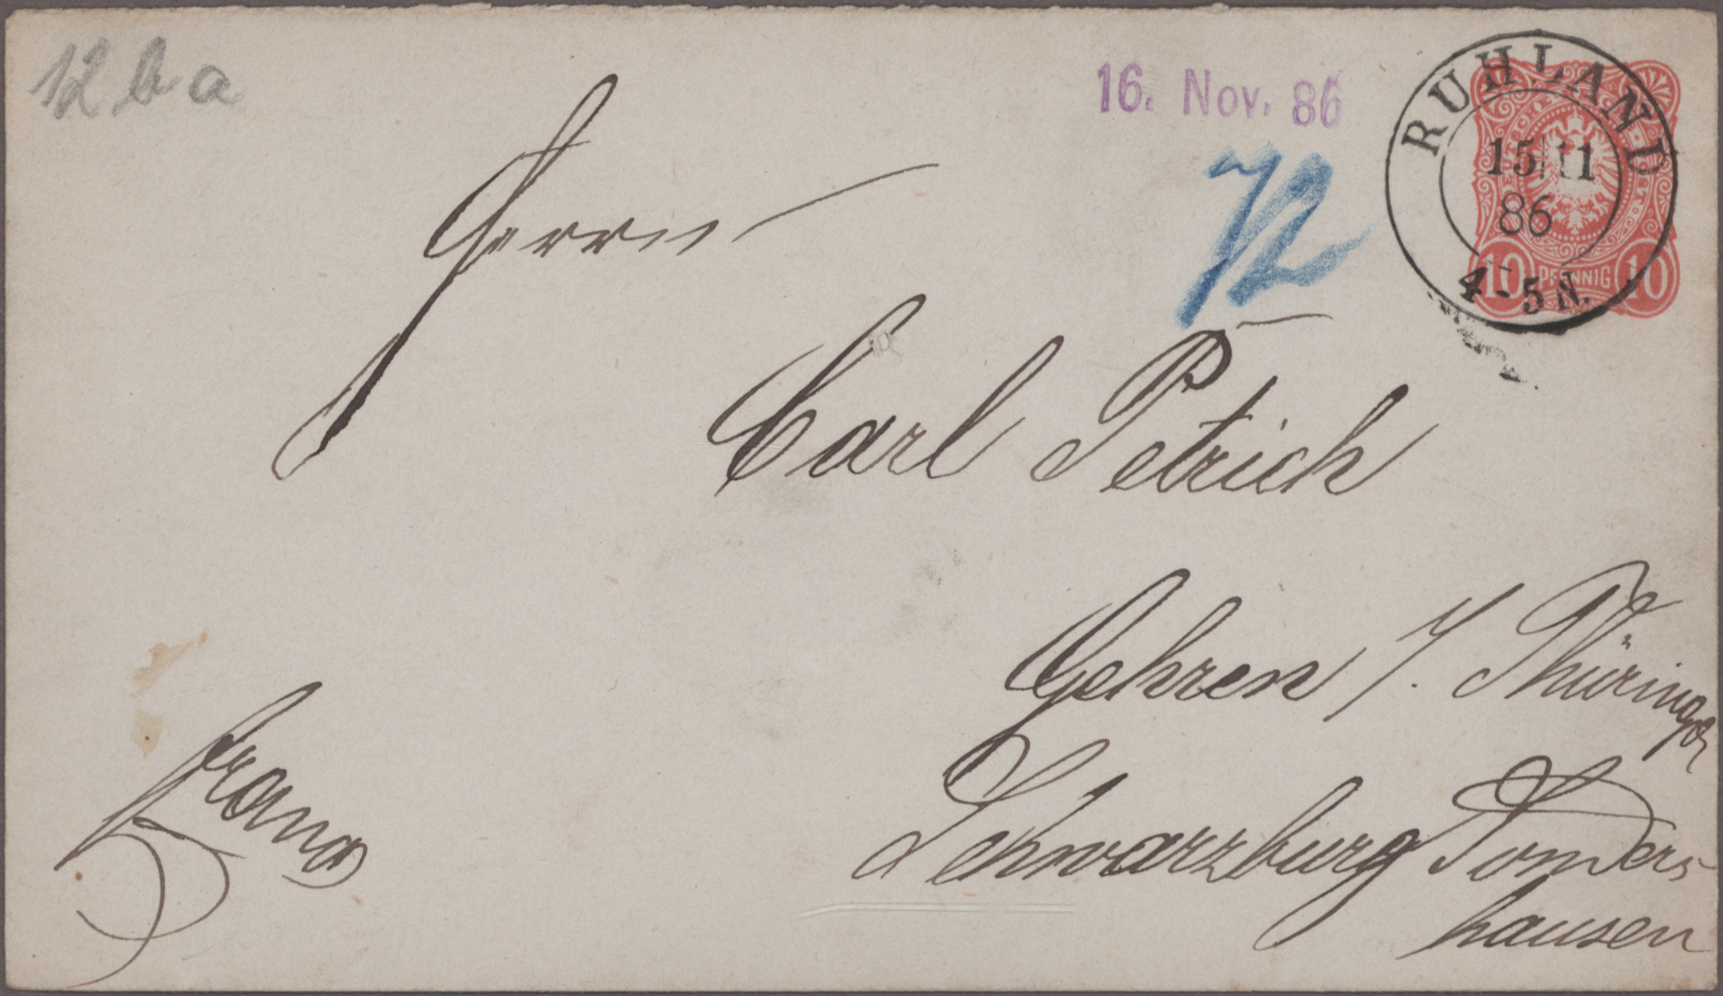 12 b a
16. Nov. 86
RUHLAND
15 11
86
4-5 N.
10 PFENNIG 10
Herrn
Carl Petrich
Gehren i/. Thüringen
Schwarzburg Sonders
hausen
franco